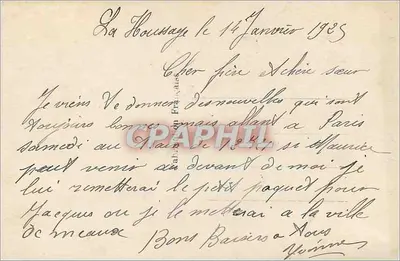 La Houssaye le 14 Janvier 1925
Cher frère et chère sœur
Je viens te donner des nouvelles qui sont
toujours bonnes mais allant a Paris
samedi au train de si Maurice
peut venir au devant de moi je
lui remetterai le petit paquet pour
Jacques ou je le metterai a la ville
de meaux
Bons Baisers a tous
Yvonne
CPAPHIL